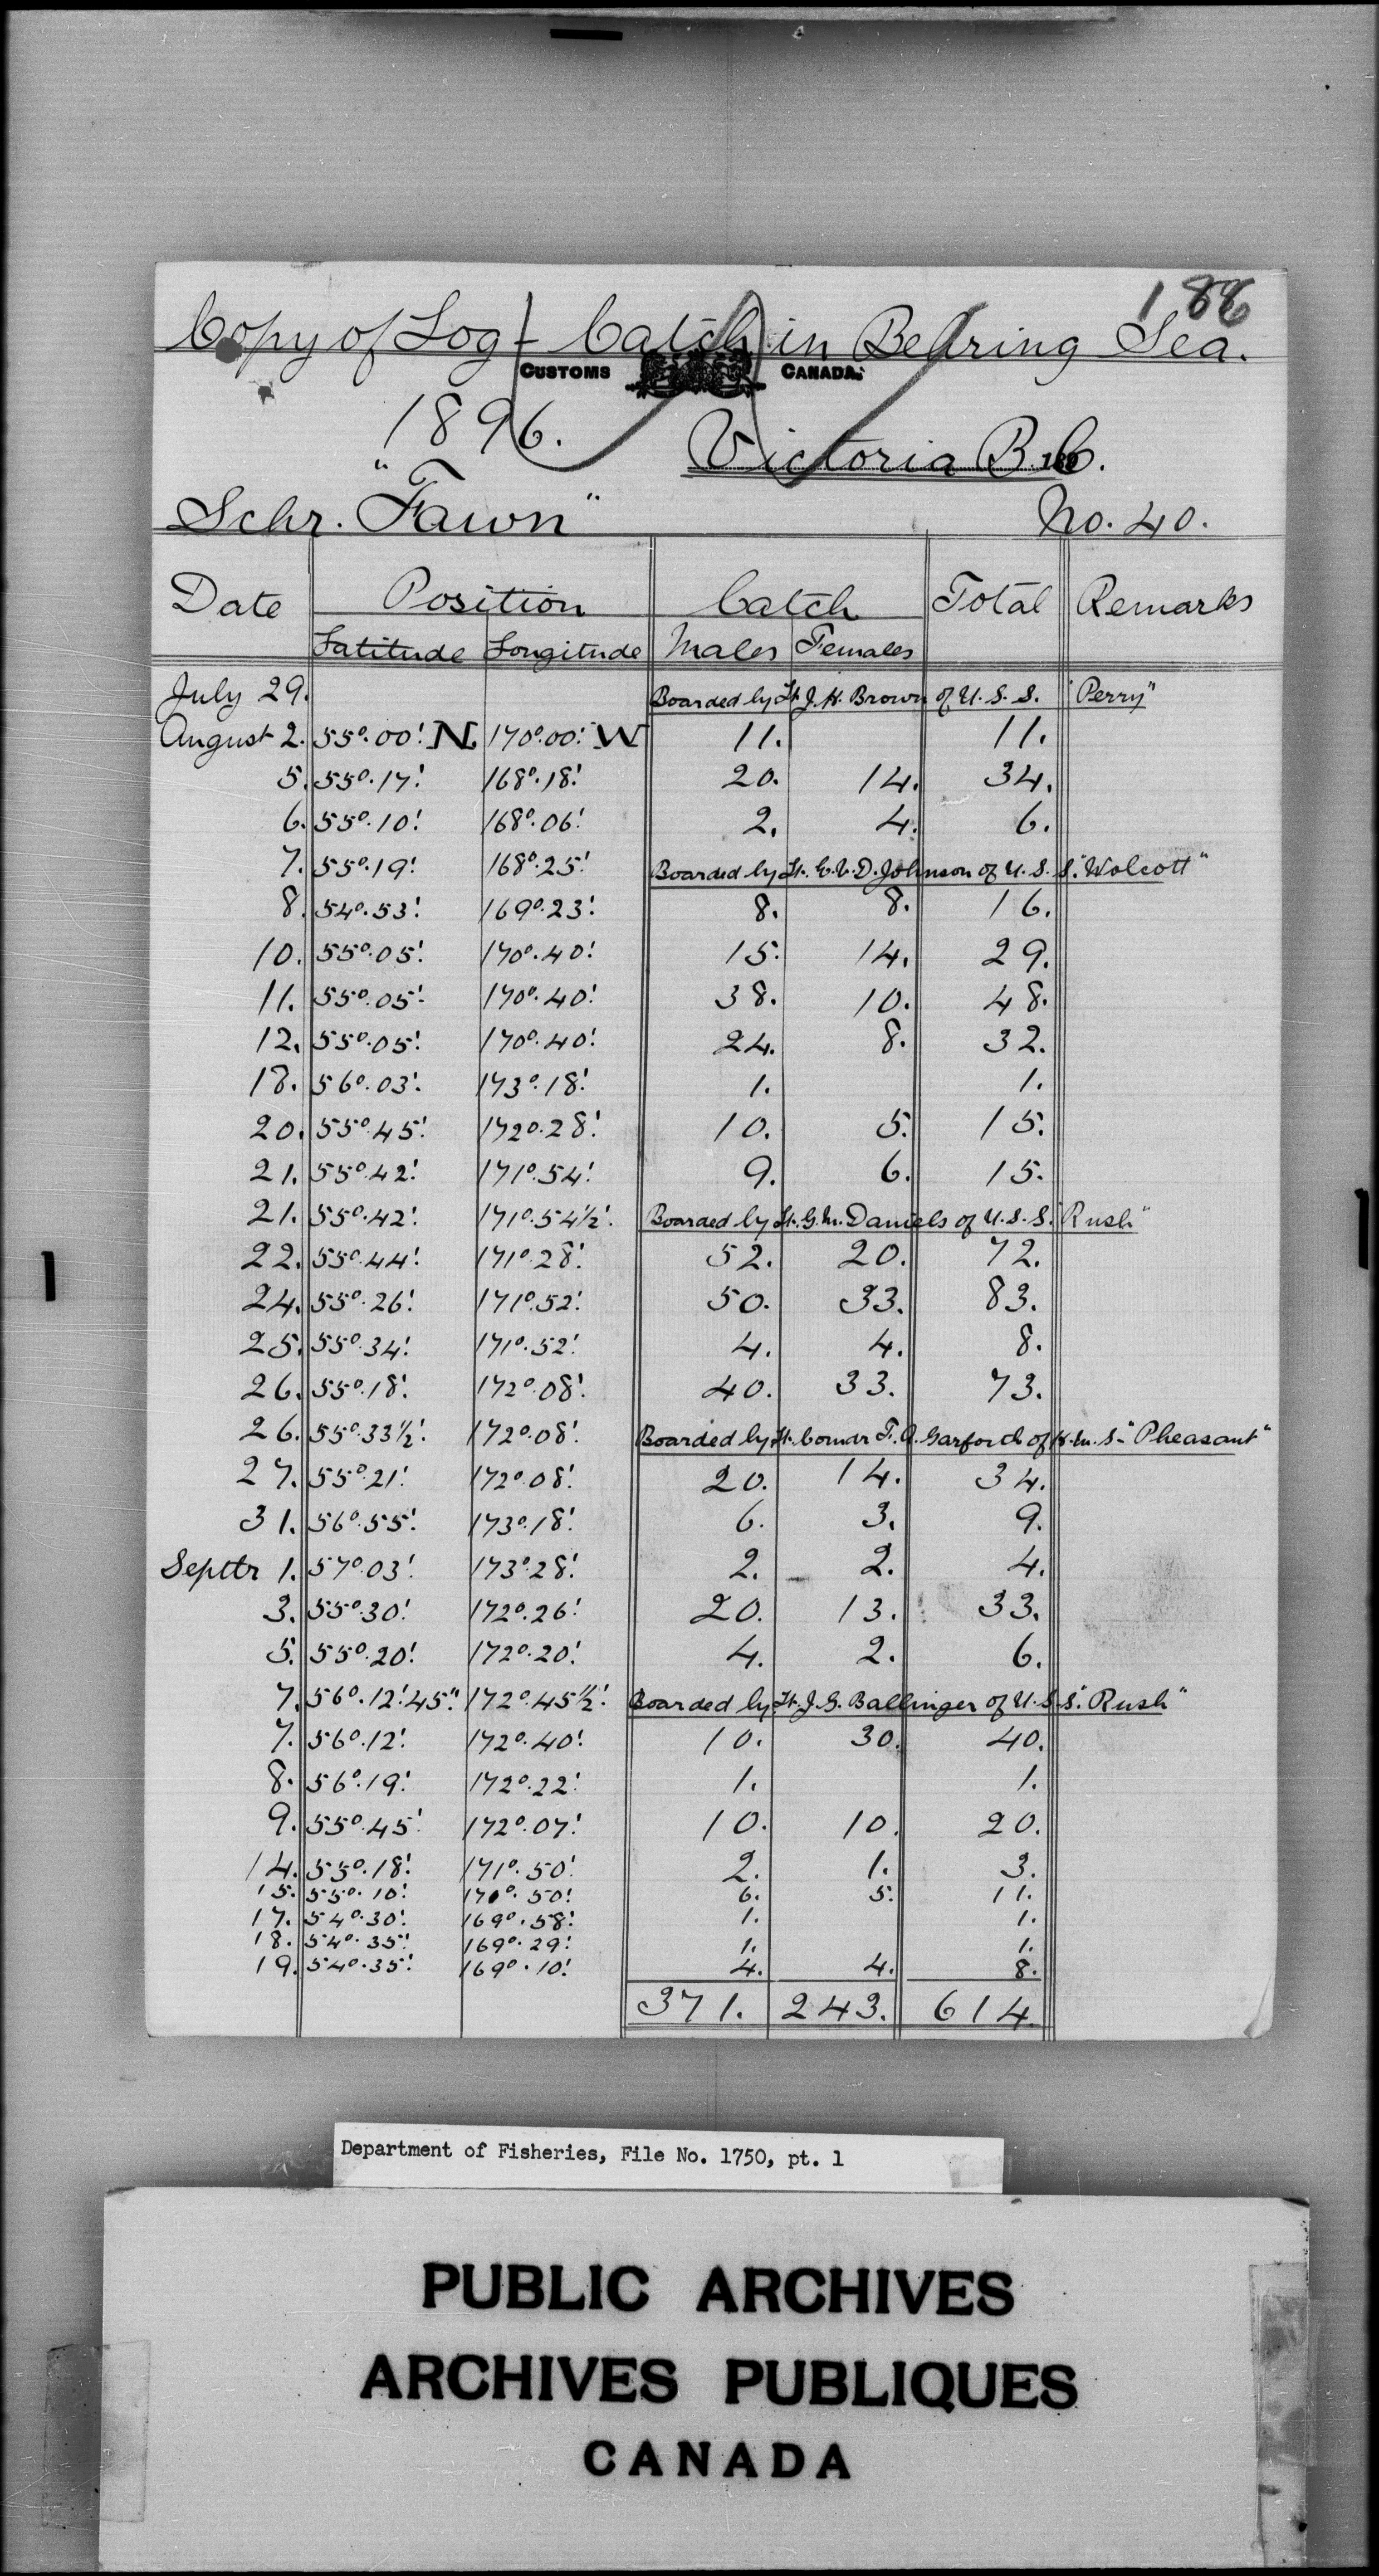 186
Copy of Log - Catch in Behring Sea.
CUSTOMS CANADA.
1896. Victoria B.C.
Schr. "Fawn" No. 40.
Date Position Catch Total Remarks
Latitude Longitude Males Females
July 29. Boarded by Lt. J. H. Brown of U. S. S. "Perry"
August 2. 55°.00'. N. 170°.00'. W 11. 11.
5. 55°.17'. 168°.18'. 20. 14. 34.
6. 55°.10'. 168°.06'. 2. 4. 6.
7. 55°.19'. 168°.25'. Boarded by Lt. E. V. D. Johnson of U. S. S. "Wolcott"
8. 54°.53'. 169°.23'. 8. 8. 16.
10. 55°.05'. 170°.40'. 15. 14. 29.
11. 55°.05'. 170°.40'. 38. 10. 48.
12. 55°.05'. 170°.40'. 24. 8. 32.
18. 56°.03'. 173°.18'. 1. 1.
20. 55°.45'. 172°.28'. 10. 5. 15.
21. 55°.42'. 171°.54'. 9. 6. 15.
21. 55°.42'. 171°.54½'. Boarded by Lt. G. M. Daniels of U. S. S. "Rush"
22. 55°.44'. 171°.28'. 52. 20. 72.
24. 55°.26'. 171°.52'. 50. 33. 83.
25. 55°.34'. 171°.52'. 4. 4. 8.
26. 55°.18'. 172°.08'. 40. 33. 73.
26. 55°.33½'. 172°.08'. Boarded by Lt. Comdr F. A. Garforth of H. M. S. "Pheasant"
27. 55°.21'. 172°.08'. 20. 14. 34.
31. 56°.55'. 173°.18'. 6. 3. 9.
Septtr 1. 57°.03'. 173°.28'. 2. 2. 4.
3. 55°.30'. 172°.26'. 20. 13. 33.
5. 55°.20'. 172°.20'. 4. 2. 6.
7. 56°.12'.45". 172°.45½'. Boarded by Lt. J. G. Ballinger of U. S. S. "Rush"
7. 56°.12'. 172°.40'. 10. 30. 40.
8. 56°.19'. 172°.22'. 1. 1.
9. 55°.45'. 172°.07'. 10. 10. 20.
14. 55°.18'. 171°.50'. 2. 1. 3.
15. 55°.10'. 170°.50'. 6. 5. 11.
17. 54°.30'. 169°.58'. 1. 1.
18. 54°.35'. 169°.29'. 1. 1.
19. 54°.35'. 169°.10'. 4. 4. 8.
371. 243. 614.
Department of Fisheries, File No. 1750, pt. 1
PUBLIC ARCHIVES
ARCHIVES PUBLIQUES
CANADA